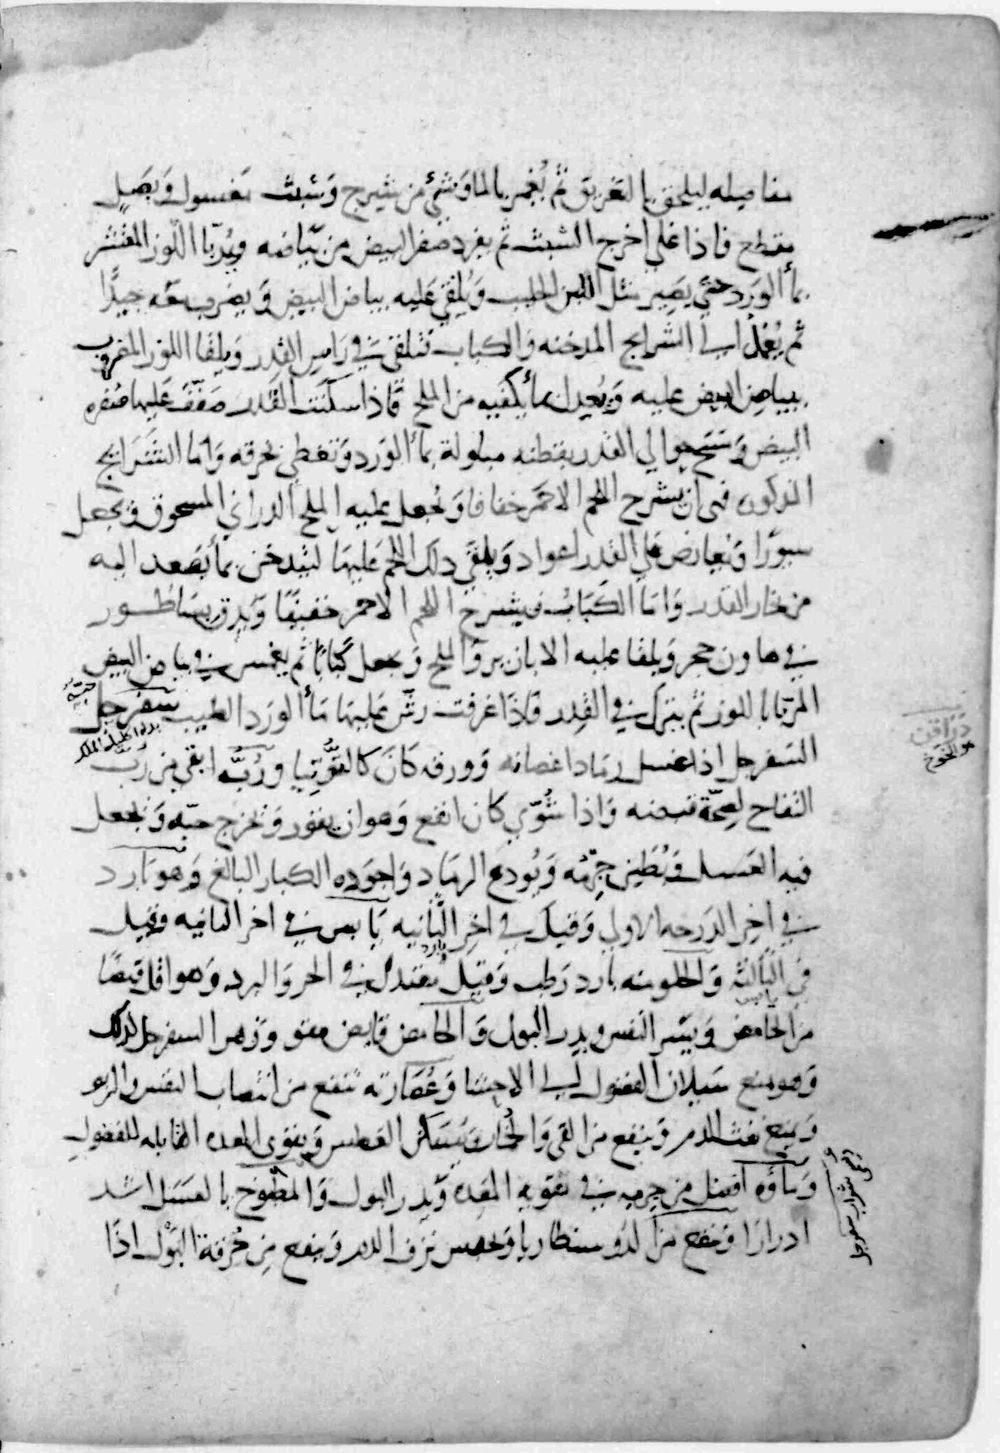 مفاصله ليلحق بالتغريق ثم يُغمر بالما وشئ من شيرج وشبث مغسول وبصل
مقطع فاذا غلى اخرج الشبث ثم يفرد صفر البيض من بياضه ويُربا اللوز المقشر
بمأ الورد حتي يصير مثل اللبن الحليب ويُلقي عليه بياض البيض ويضرب معه جيدًا
ثم يُعمد الى الشرايح المدخنه والكباب فتلقى في راس القدر ويلقا اللوز المضروب
ببياض البيض عليه ويُعدل بما يكفيه من الملح فاذا سكنت القدر صففت عليها صفره
البيض ومسح حوالي القدر بقطنه مبلولة بمأ الورد وتغطي بخرقه واما الشرايح
المذكوره فهي ان يشرح اللحم الاحمر خفافا ويجعل عليه الملح الدراني المسحوق ويجعل
سيورًا ويعارض علي القدر اعواد ويلقى ذلك اللحم عليها ليتدخن بما يصعد اليه
من بخار القدر واما الكباب فيشرح اللحم الاحمر خفيفًا ويدق بساطور
في هاون حجر ويلقا عليه الابازير والملح ويجعل كبابًا ثم يغمس في بياض البيض
المربا باللوز ثم يترك في القدر فاذا غرفت رش عليها مأ الورد الطيب سفرجل
السفرجل اذا غسل رماد اغصانه وورقه كان كالتوتيا وربُّه ابقى من رب
التفاح لصحّة قبضه واذا شُوّي كان انفع وهو ان يقور ويخرج حبّه ويجعل
فيه العسل ويُطين جرمُه ويُودع الرماد واجوده الكبار البالغ وهو بارد
في اخر الدرجه الاولى وقيل في اخر الثانيه يابس في اخر الثانيه وقيل
في الثالثة والحلو منه بارد رطب وقيل معتدل في الحر والبرد وهو اقل قبضًا
من الحامض ويسر النفس ويدر البول والحامض قابض مقو وزهر السفرجل كذلك
وهو يمنع سيلان الفضول الى الاحشا وعُصارته تنفع من انتصاب النفس والربو
ويمنع نفث الدم وينفع من القي والخُمار ويُسكن العطش ويقوى المعده القابله للفضول
ومآؤه افضل من جرمه في تقويه المعده ويدر البول والمطبوخ بالعسل اشد
ادرارًا وينفع من الدوسنطاريا ويحبس نزف الدم وينفع من حُرقة البَوْل اذا
دراقن
هو الخوخ
شراب سفرجل